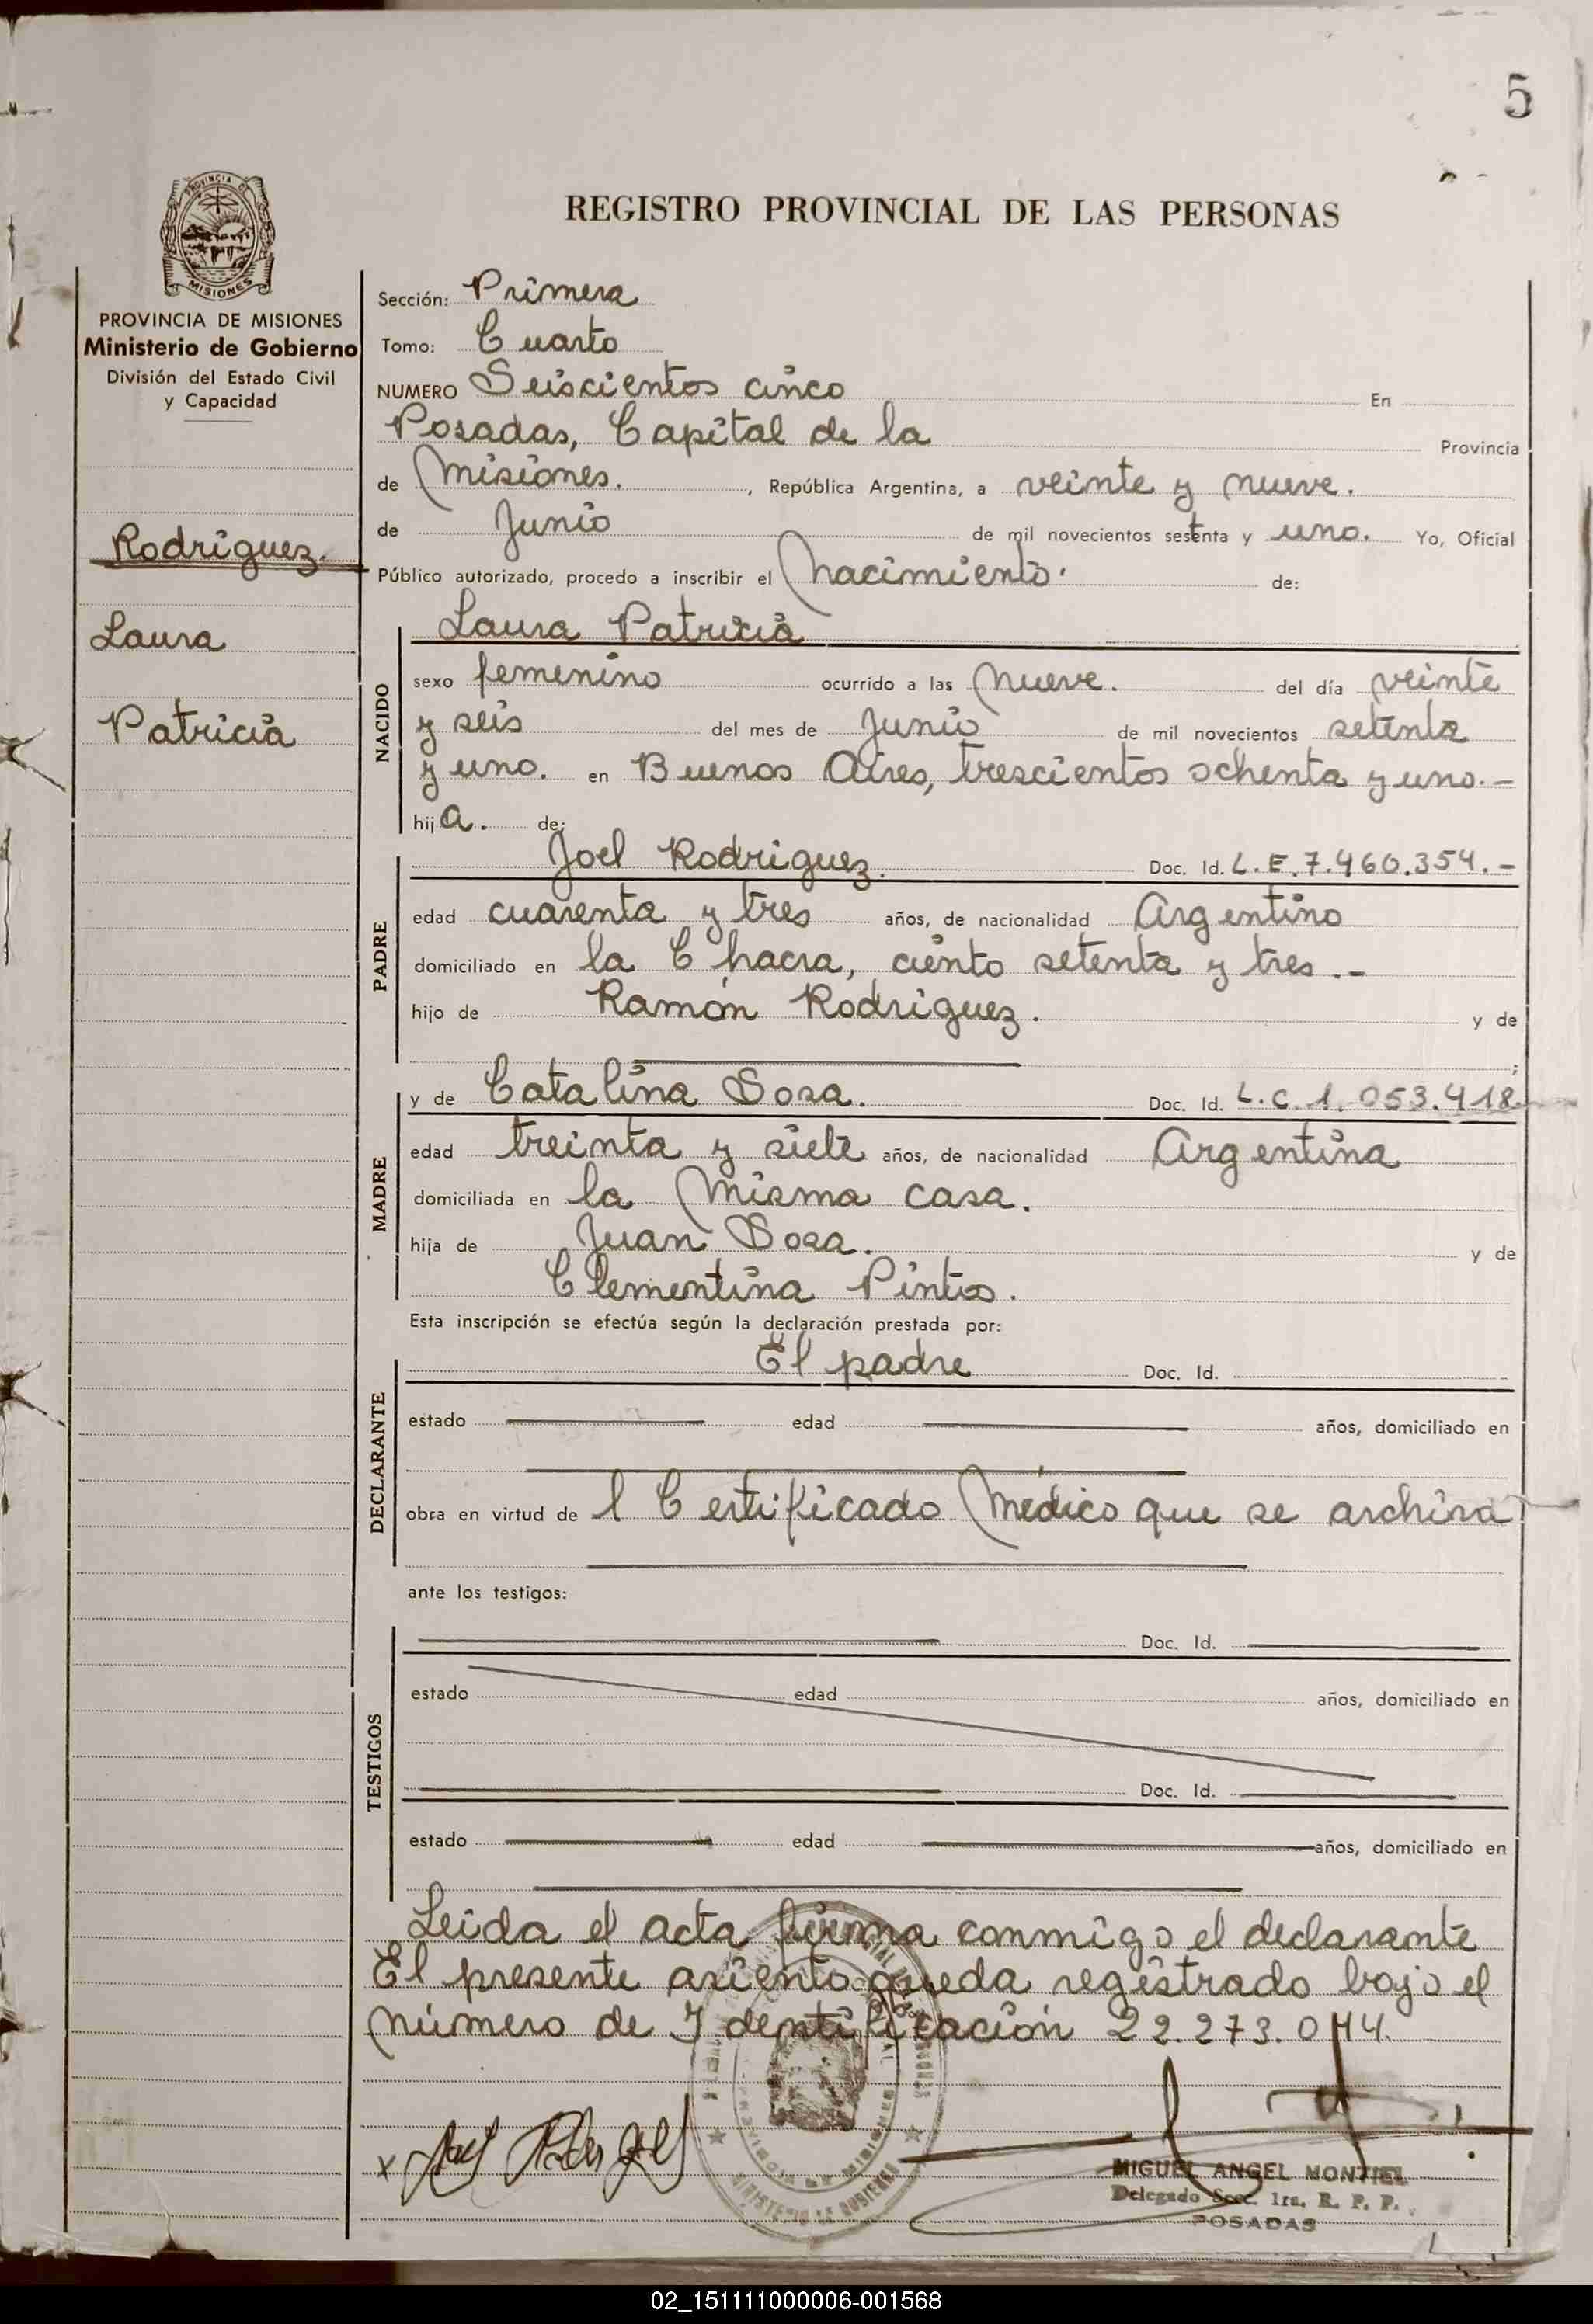 5
REGISTRO PROVINCIAL DE LAS PERSONAS
PROVINCIA DE
MISIONES
PROVINCIA DE MISIONES
Ministerio de Gobierno
División del Estado Civil
y Capacidad
Rodriguez.
Laura
Patricia
Sección: Primera
Tomo: Cuarto
NUMERO Seiscientos cinco En
Posadas, Capital de la Provincia
de Misiones. , República Argentina, a veinte y nueve.
de Junio de mil novecientos setenta y uno. Yo, Oficial
Público autorizado, procedo a inscribir el nacimiento. de:
NACIDO
Laura Patricia
sexo femenino ocurrido a las nueve. del día veinte
y seis del mes de Junio de mil novecientos setenta
y uno. en Buenos Aires, trescientos ochenta y uno.-
hija. de:
PADRE
Joel Rodriguez. Doc. Id. L.E.7.460.354.-
edad cuarenta y tres años, de nacionalidad Argentino
domiciliado en la Chacra, ciento setenta y tres.-
hijo de Ramón Rodriguez. y de
;
MADRE
y de Catalina Sosa. Doc. Id. L.C.1.053.418
edad treinta y siete años, de nacionalidad Argentina
domiciliada en la misma casa.
hija de Juan Sosa. y de
Clementina Pintos.
Esta inscripción se efectúa según la declaración prestada por:
DECLARANTE
El padre Doc. Id.
estado edad años, domiciliado en
obra en virtud del Certificado Médico que se archiva
ante los testigos:
TESTIGOS
Doc. Id.
estado edad años, domiciliado en
Doc. Id.
estado edad años, domiciliado en
Leida el acta firma conmigo el declarante
El presente asiento queda registrado bajo el
número de Identificación 22.273.044.
x
MIGUEL ANGEL MONTIEL
Delegado Secc. 1ra. R. P. P.
POSADAS
02_151111000006-001568